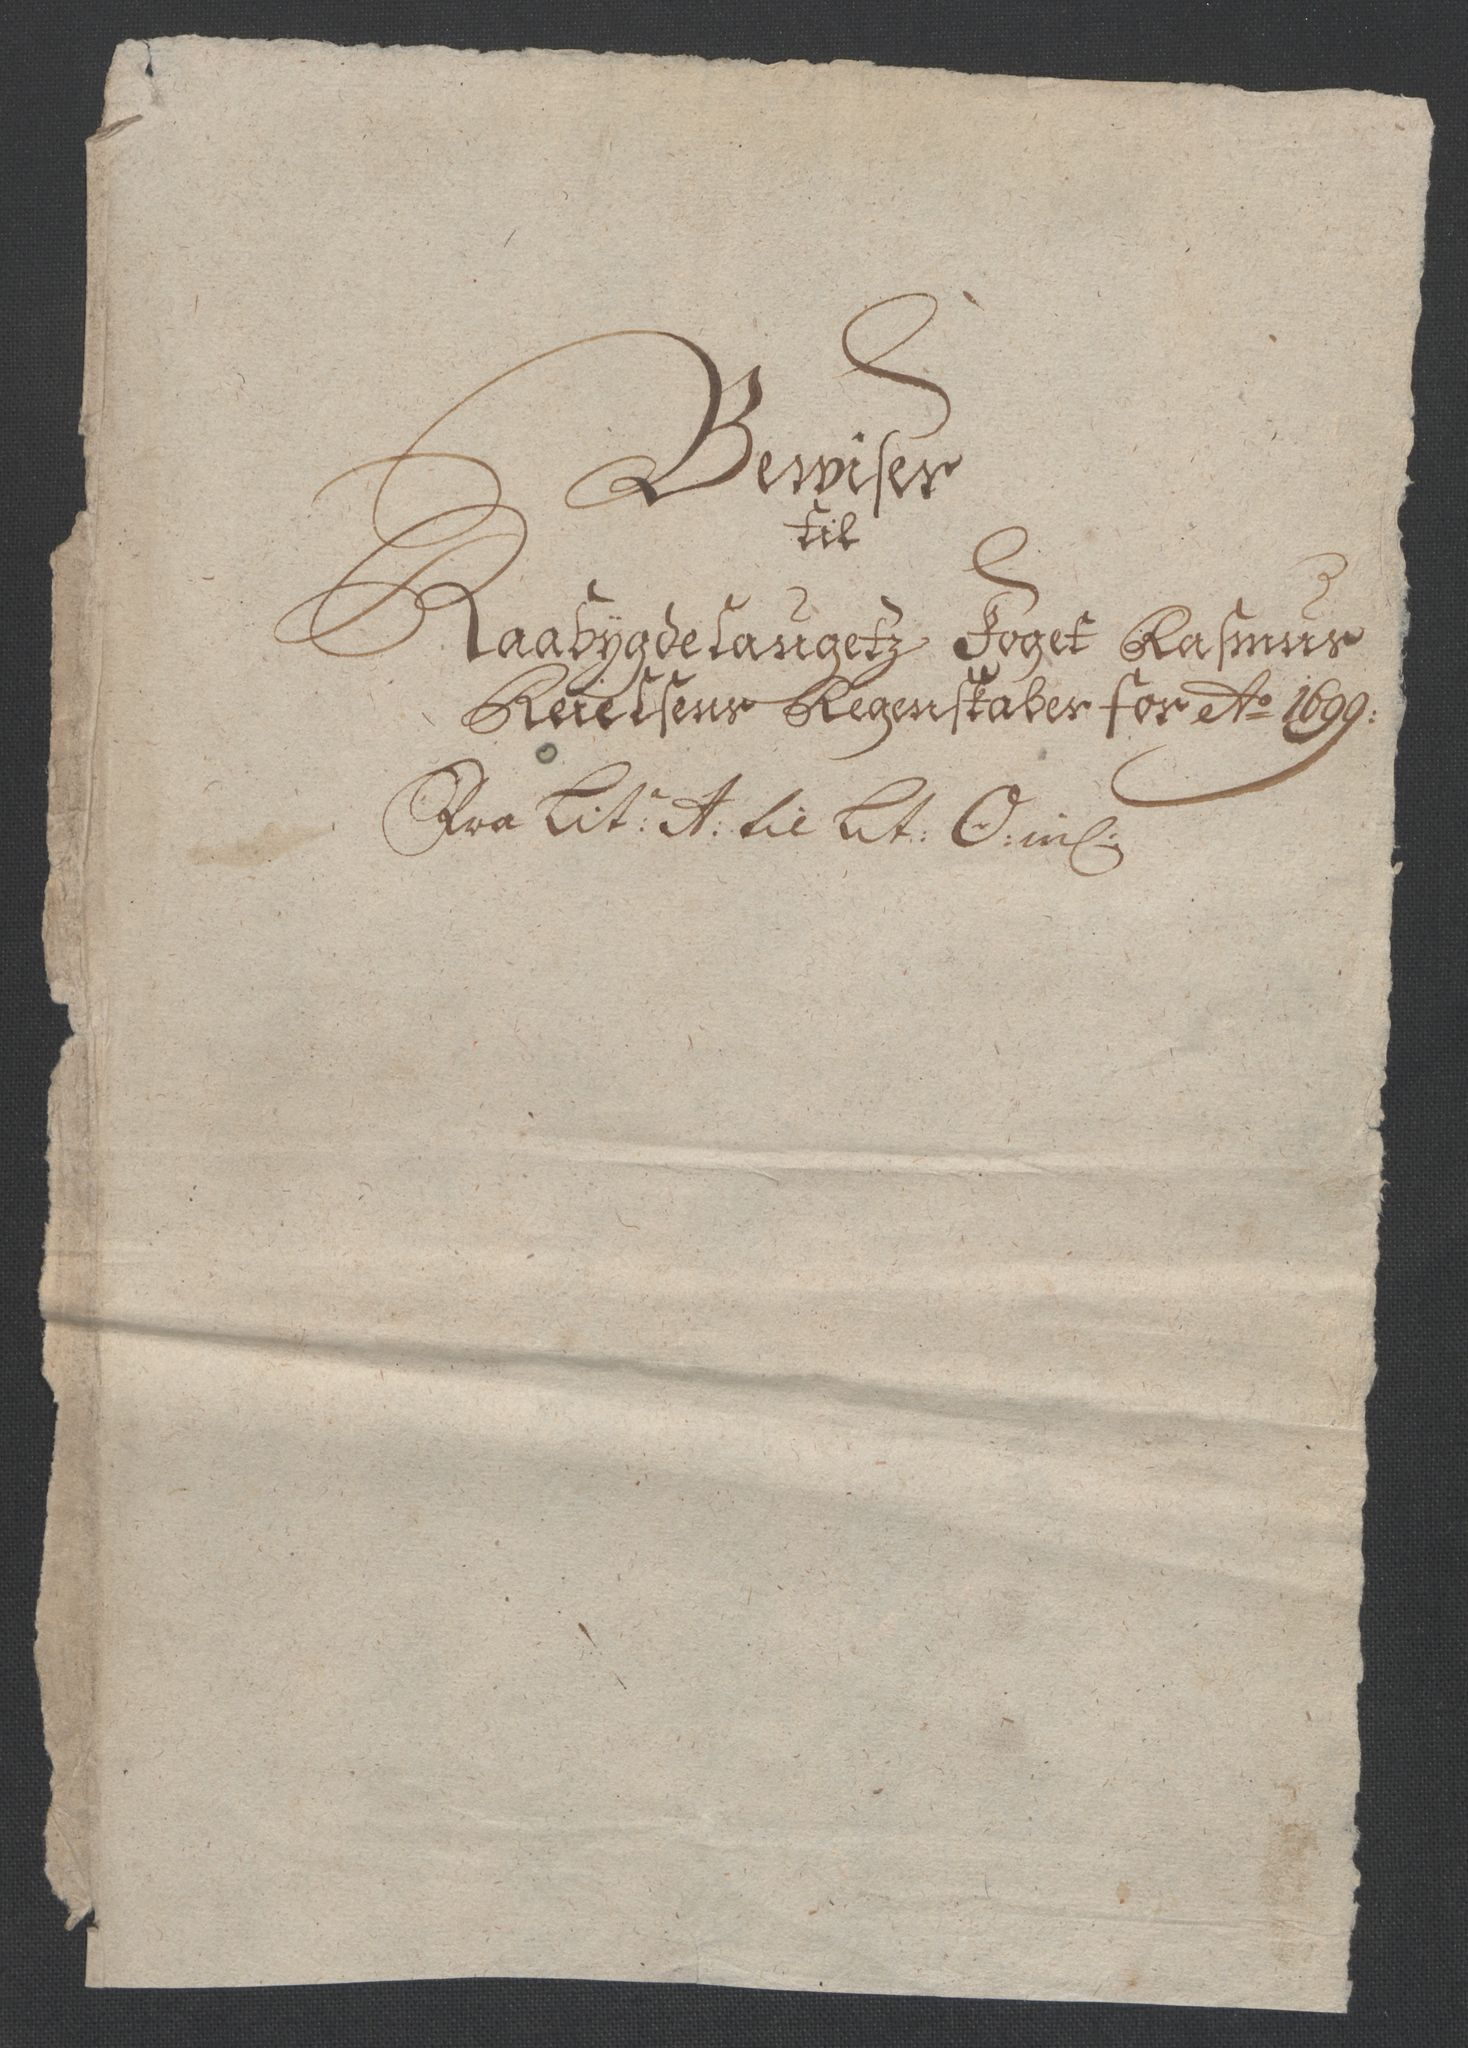 Bewiser
til
Raabÿgdelaugetz Foget Rasmus
Keielsens Regenskaber for Ao 1699:
Fra Lit:a A: til Lit: O: incl: